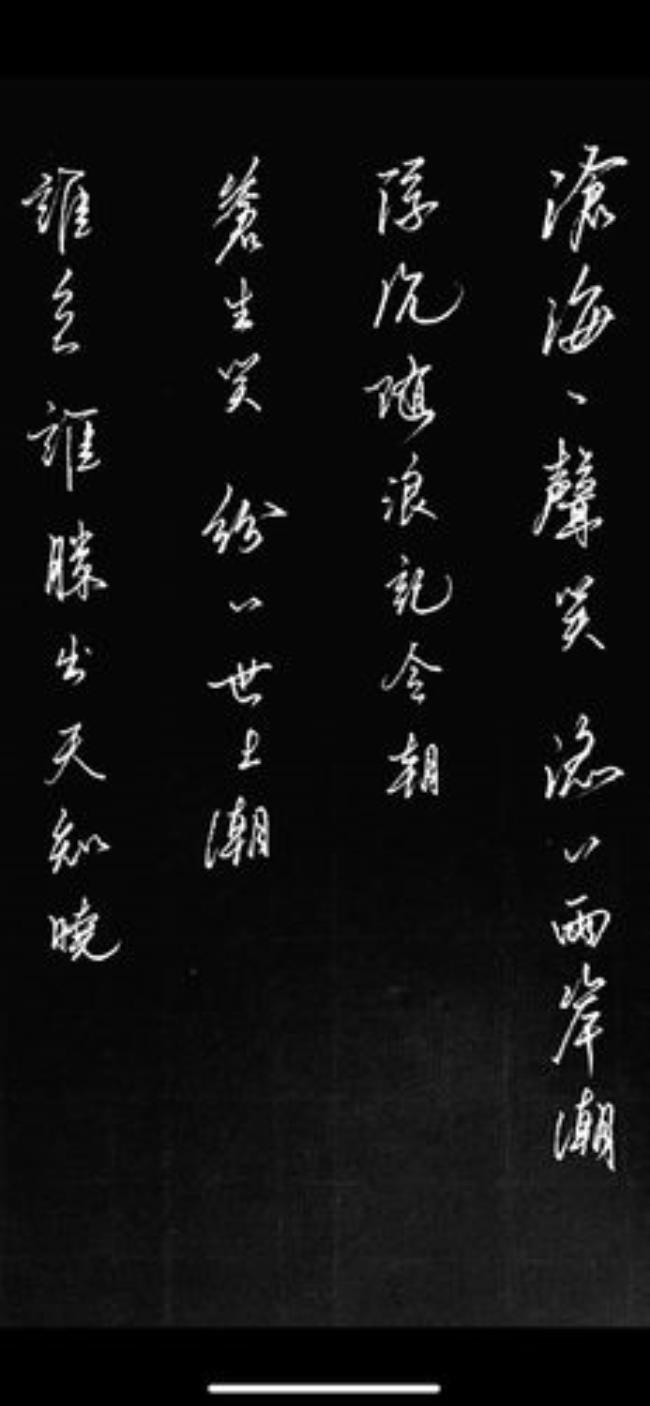 滄海一聲笑 滔々兩岸潮
浮沉随浪記今朝
蒼生笑 紛々世上潮
誰負誰勝出天知曉